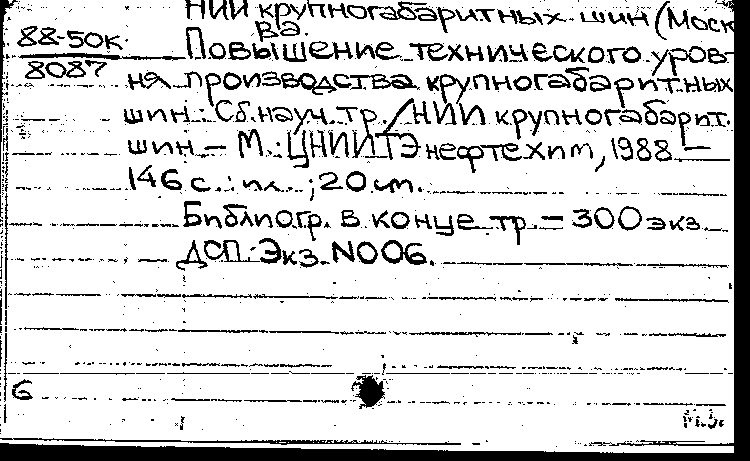 НИИ крупногабаритных шин (Моск
ва.
88-50к
8087
Повышение технического уров-
ня производства крупногабаритных
шин: Сб. науч. тр. / НИИ крупногабарит.
шин – М.: ЦНИИТЭнефтехим, 1988 –
146 с.: ил. ; 20 см.
Библиогр. в конце тр – 300 экз.
ДСП: Экз. N006.
6